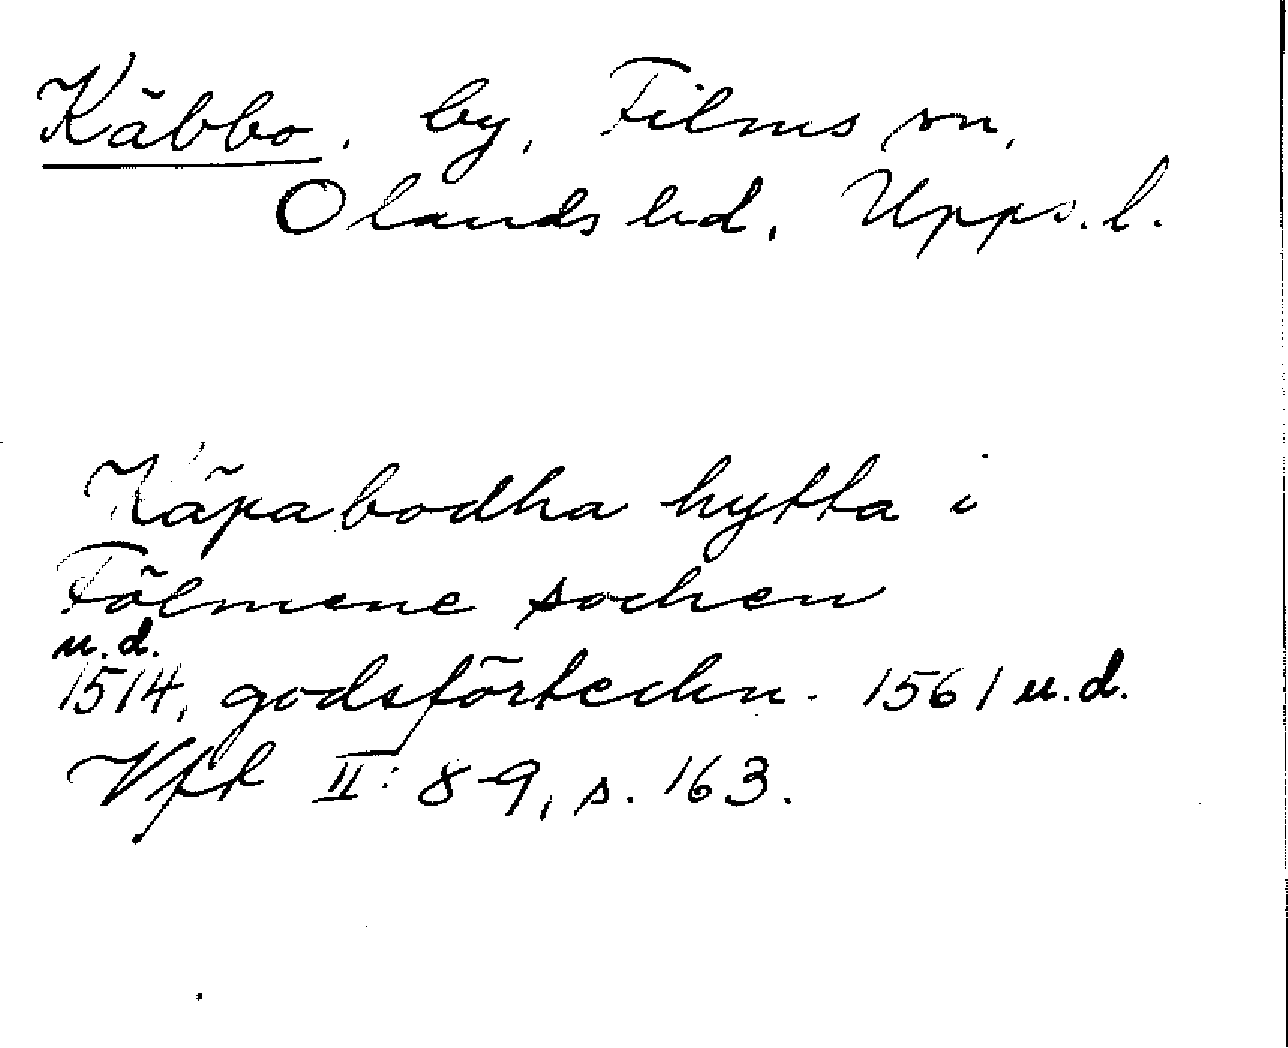 Käbbo, by, Films sn,
Olands hd, Upps. l.
Käpabodha hytta i
Fölmene sochen
u.d.
1514, godsförteckn. 1561 u.d.
Vfk II: 8-9, s. 163.